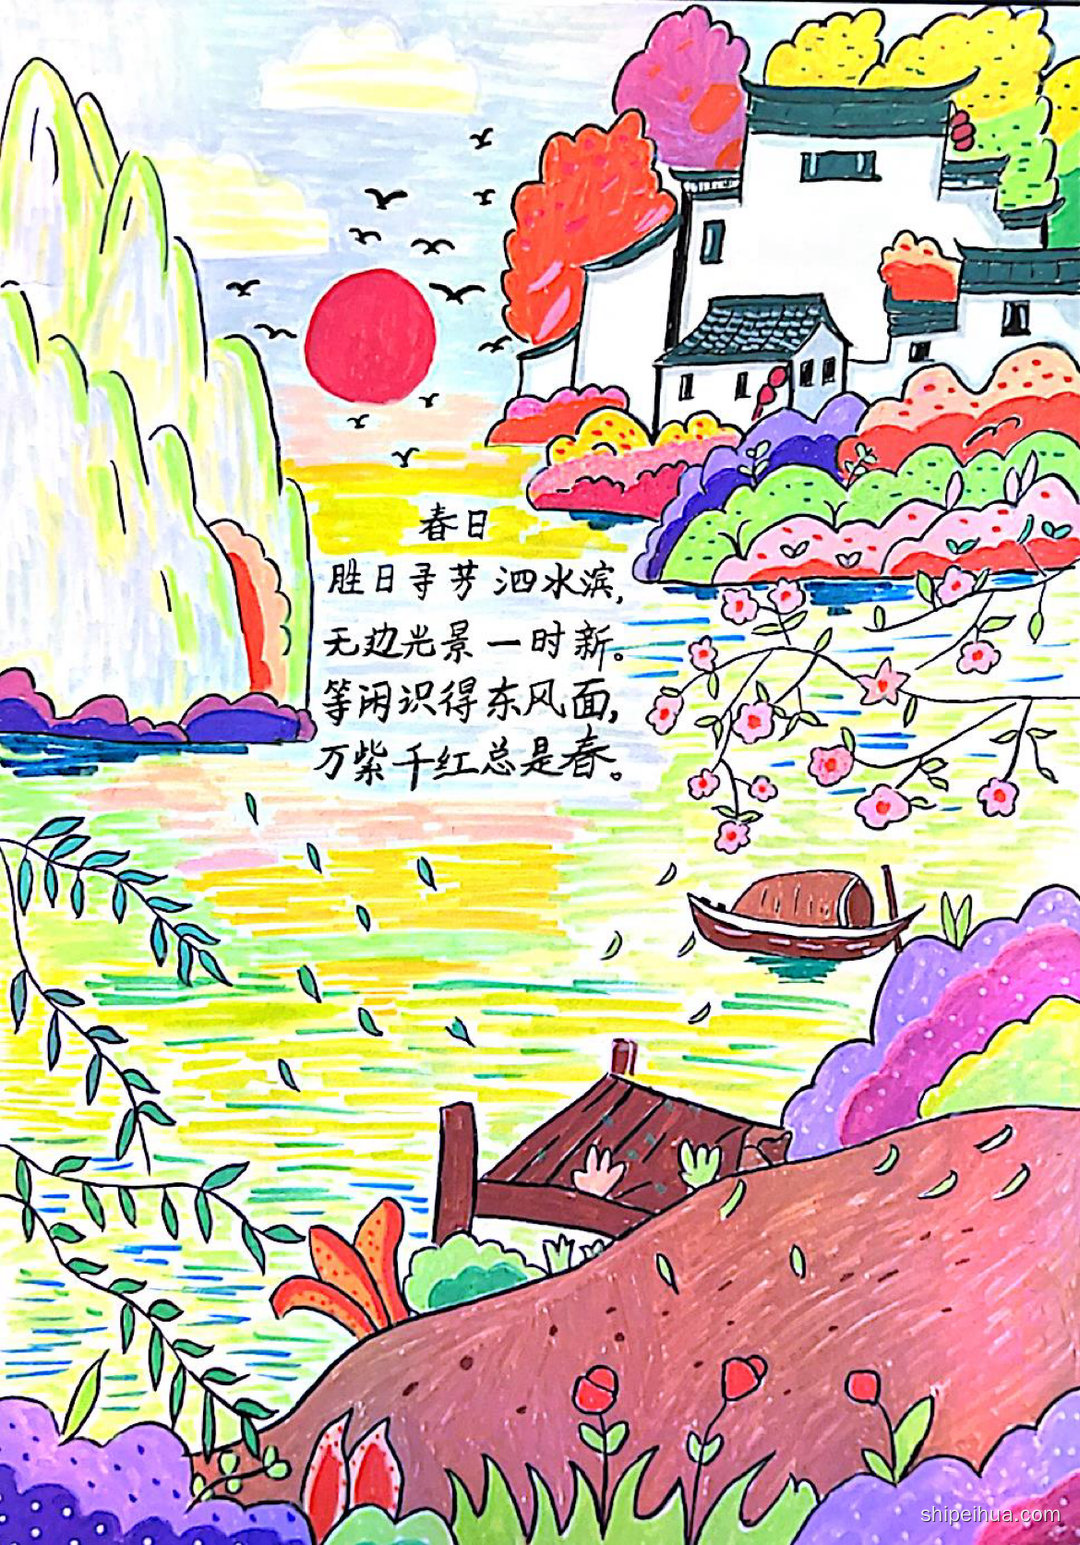 春日
胜日寻芳泗水滨,
无边光景一时新。
等闲识得东风面,
万紫千红总是春。
shipeihua.com